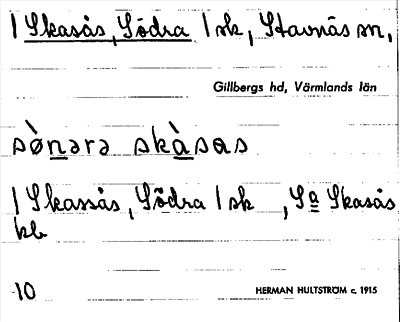 | Skasås, Södra | sk, Stavnäs sn,
Gillbergs hd, Värmlands län
sø̀nərə skàsəs
| Skassås, Södra | sk , Sa Skasås
kb
10
HERMAN HULTSTRÖM c. 1915